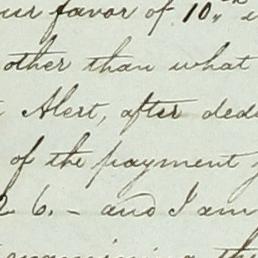 our favor of 10,,th
other than what
Alert, after dedu
of the payment
2 6. - and I am